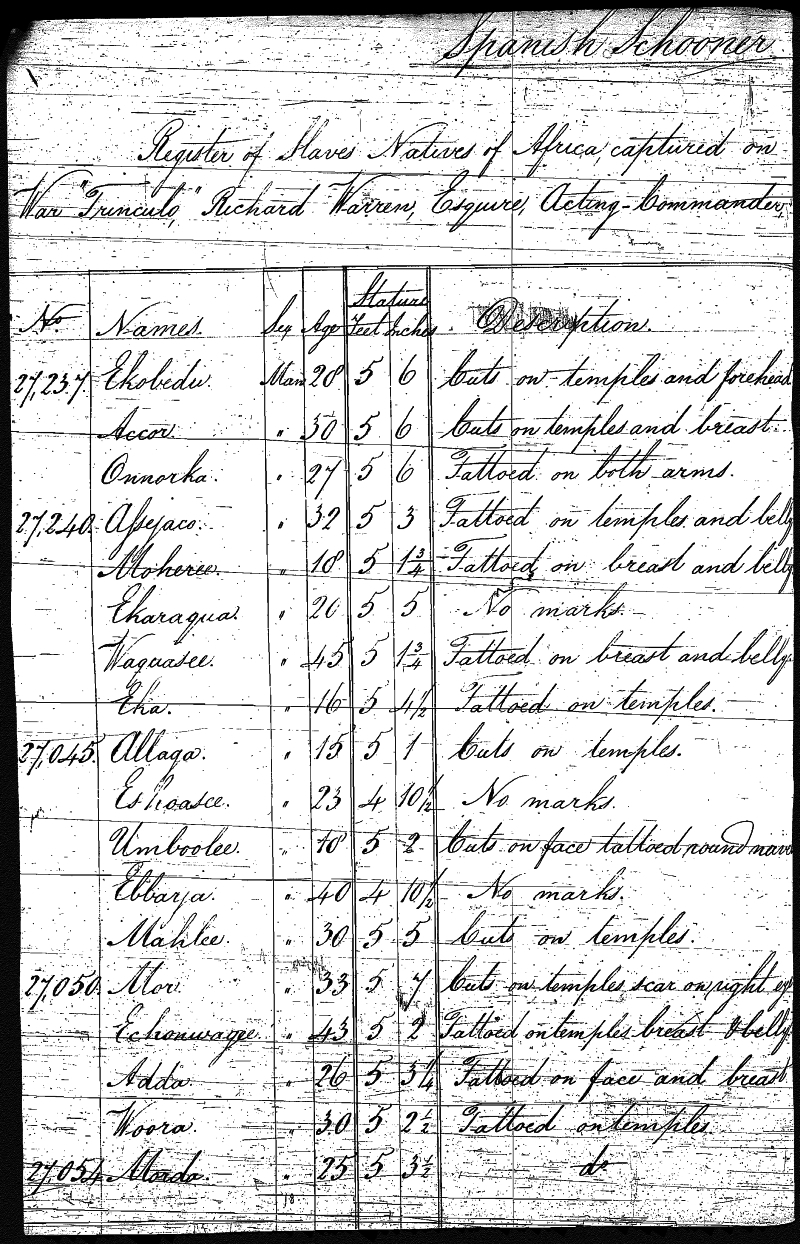 Spanish Schooner
Register of Slaves Natives of Africa, captured on
War "Trinculo," Richard Warren, Esquire, Acting-Commander,
Stature
No Names. Sex Age Feet Inches. Description.
27,237. Ekobedu. Man 28 5 6 Cuts on temples and forehead
Accor. " 30 5 6 Cuts on temples and breast.
Onnorka. " 27 5 6 Tattoed on both arms.
27,240. Assejaco. " 32 5 3 Tattoed on temples and belly
Moheree. " 18 5 1 3/4 Tattoed on breast and belly
Ekaragua. " 20 5 5 No marks.
Waguasee. " 45 5 1 3/4 Tattoed on breast and belly.
Eka. " 16 5 4 1/2 Tattoed on temples.
27,045. Allaga. " 15 5 1 Cuts on temples.
Eshoasee. " 23 4 10 1/2 No marks.
Umboolee. " 18 5 2 Cuts on face tattoed round
Ebbarja. " 40 4 10 1/2 No marks.
Mahlee. " 30 5 5 Cuts on temples.
27,050. Mor. " 33 5 7 Cuts on temples scar on right
Echonwagee. " 43 5 2 Tattoed on temples breast & belly
Adda. " 26 5 3 1/4 Tattoed on face and breast.
Woora. " 30 5 2 1/2 Tattoed on temples
27,054 Mordo. " 25 5 3 1/2 do
18